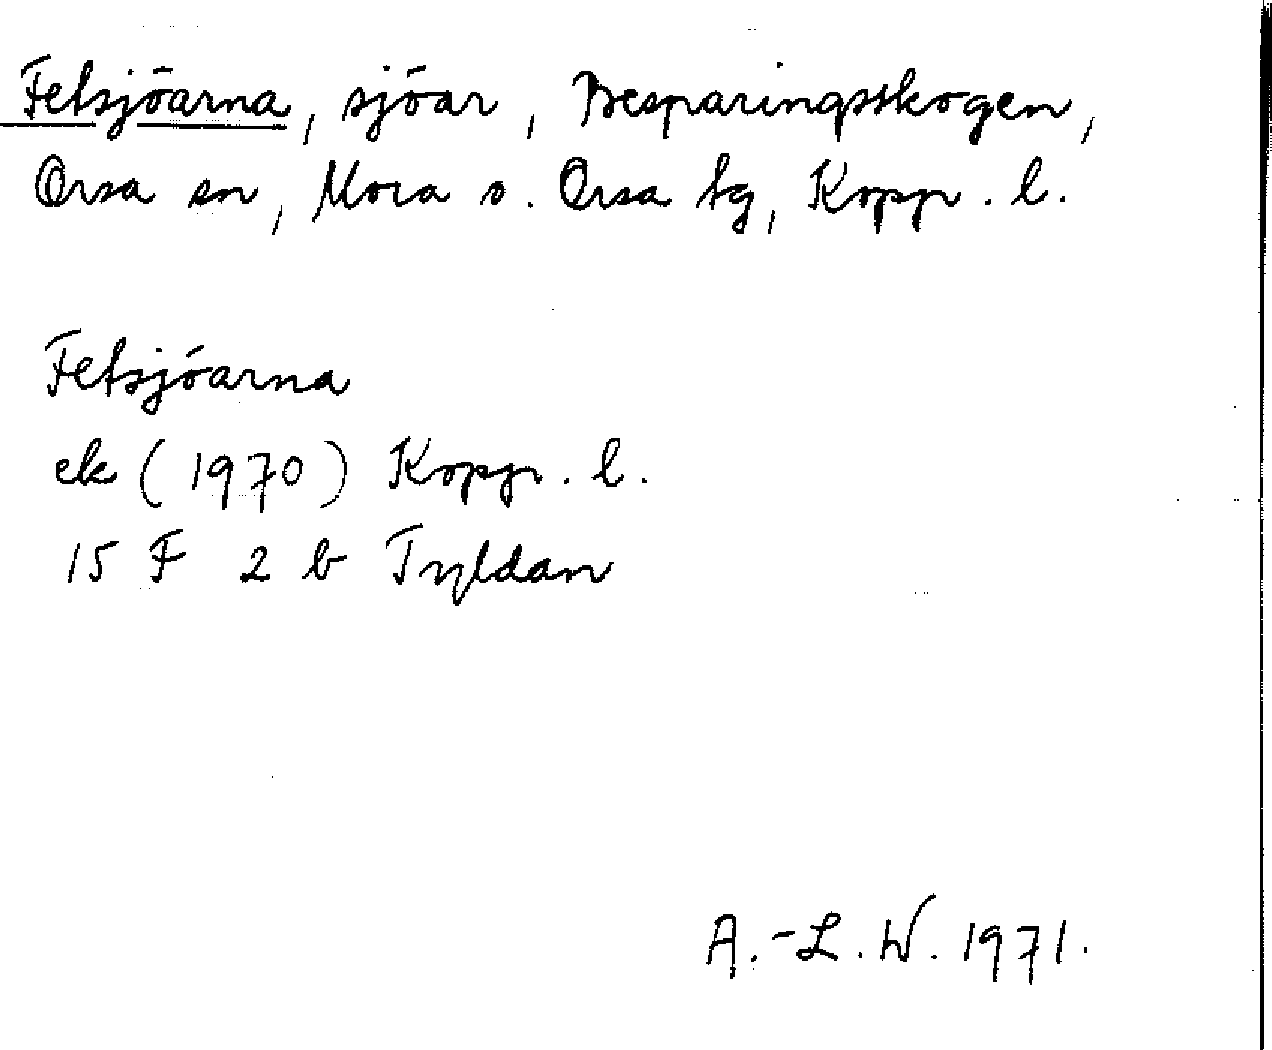 Fetsjöarna, sjöar, Besparingsskogen,
Orsa sn, Mora o. Orsa tg, Kopp. l.
Fetsjöarna
ek (1970) Kopp. l.
15 F 2 b Tyldan
A.-L. W. 1971.